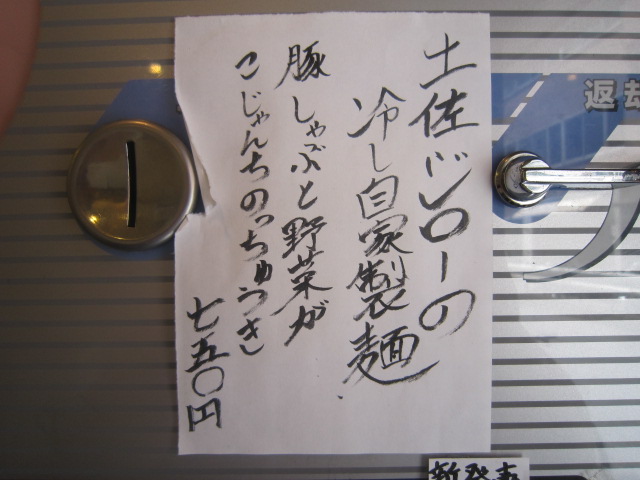 土佐ジローの
冷し自家製麺
豚しゃぶと野菜が
こじゃんちのっちゅうき
七五〇円
返却
新発売